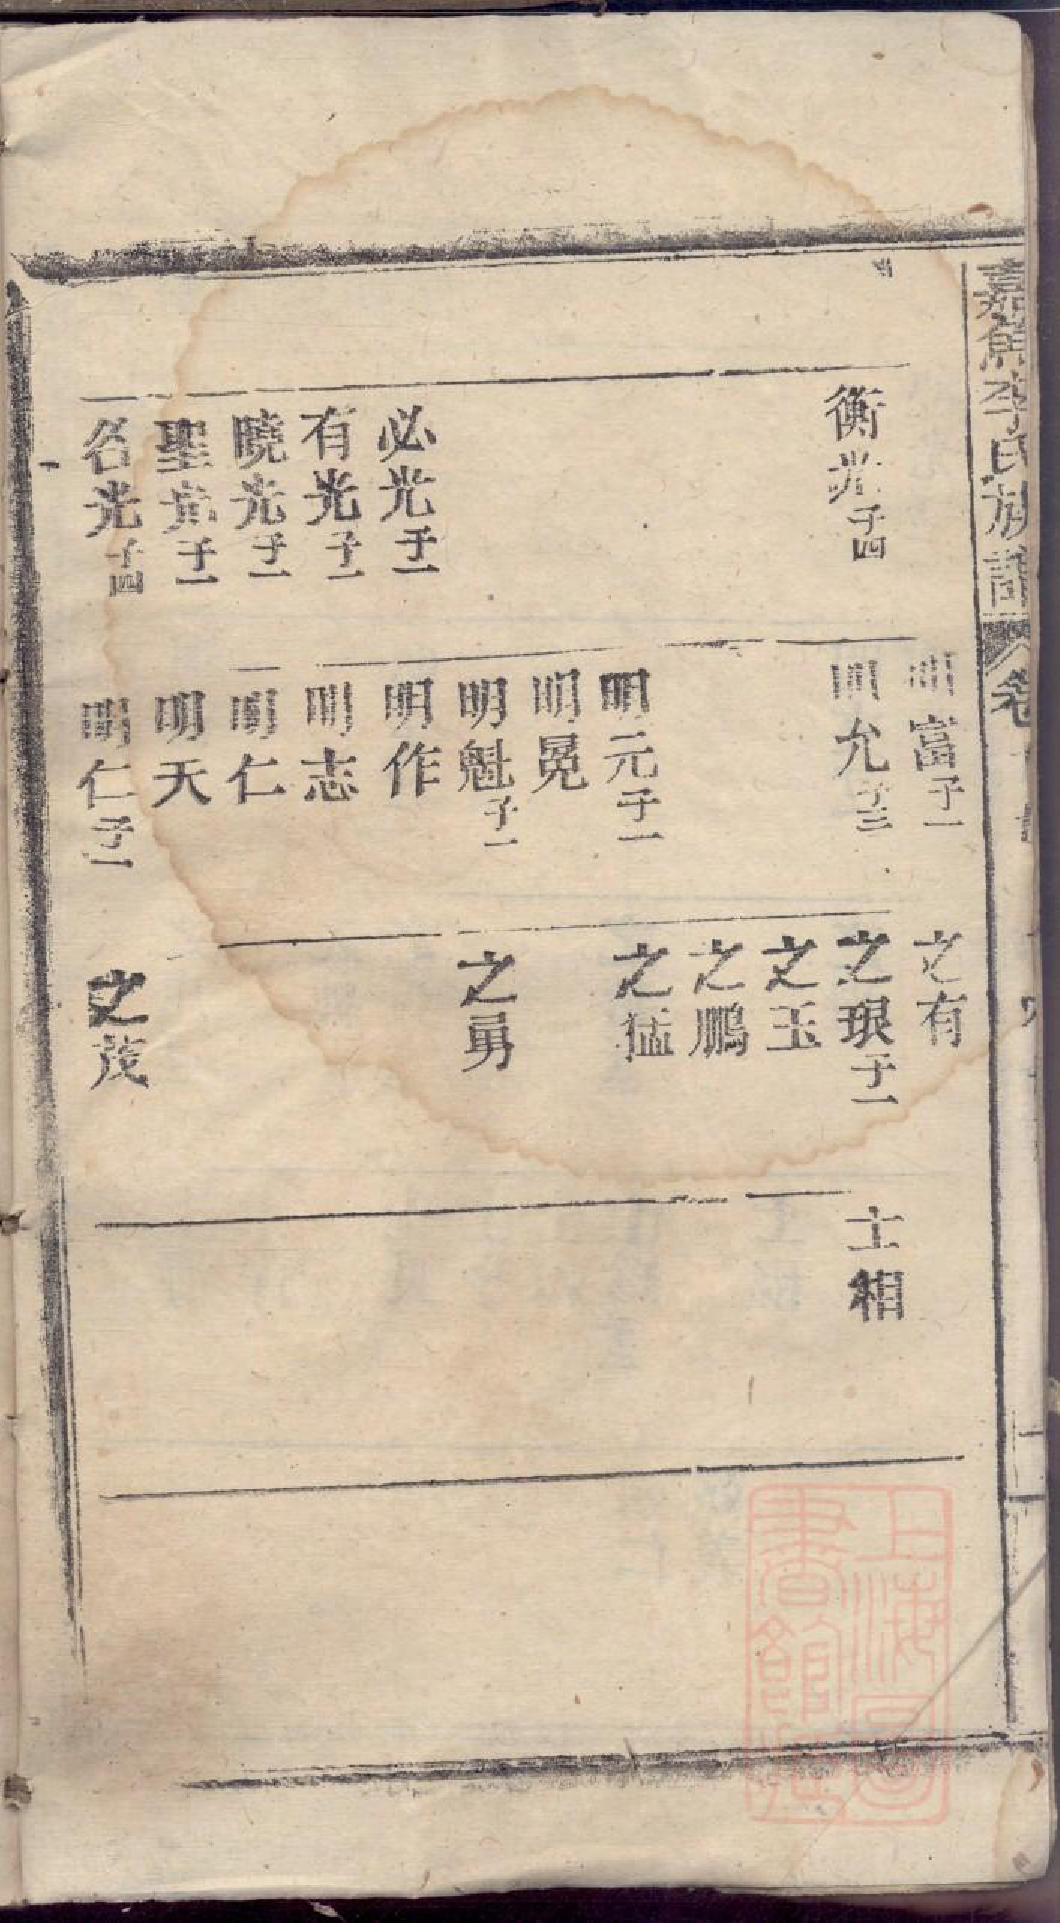 嘉魚李氏族譜
卷
衡光子四
必光子一
有光子一
曉光子一
聖光子一
名光子四
明富子一
明允子三
明元子一
明冕
明魁子一
明作
明志
明仁
明天
明仁子一
之有
之琅子一
之玉
之鵬
之猛
之勇
之茂
士相
上海圖
書館藏